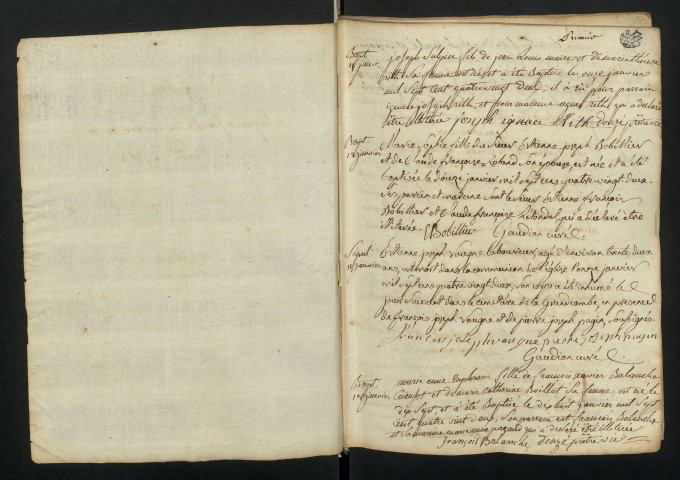 Premier
Bapt
11 janvier
joseph Sulpice fils de jean Louis maire et de marie thérèse
sa femme est né et a été Baptisé le onze janvier
mil Sept cent quatre vingt deux, il a eu pour parrain
ignace joseph et pour maraine qui a déclaré
être illiterée joseph ignace
Bapt
janvier
Marie Sophie fille du Sieur Etienne joseph Bobillier
et de Claude françoise Roland son épouse, est née et a été
baptisée le douze janvier mil sept cens quatre vingt deux.
Ses parrein et mareine sont le Sieur Etienne françois
Bobillier et Claude françoise qui a déclaré être
illiterée. Bobillier Gaudion curé.
Sepul.
janvier
Etienne joseph vaugne laboureur, agé d'environ trente deux
ans, est mort dans la communion de l'église l'onze janvier
mil sept cens quatre vingt deux, son corps a été inhumé le
jour suivant dans le cimetière de la Grandcombe, en presence
de françois joseph vaugne et de pierre joseph pugin, soussignés
pierre joseph pugin
Gaudion curé.
Bapt
janvier
marie anne fille de françois xavier Balanche
et de marie Catherine Boillot sa femme, est née le
dix Sept et a été Baptisée le dixhuit janvier mil Sept
cent quatre vint deux, Son parrain est francois Balanche
et sa maraine marie anne qui a déclaré être illiterée
François Balanche